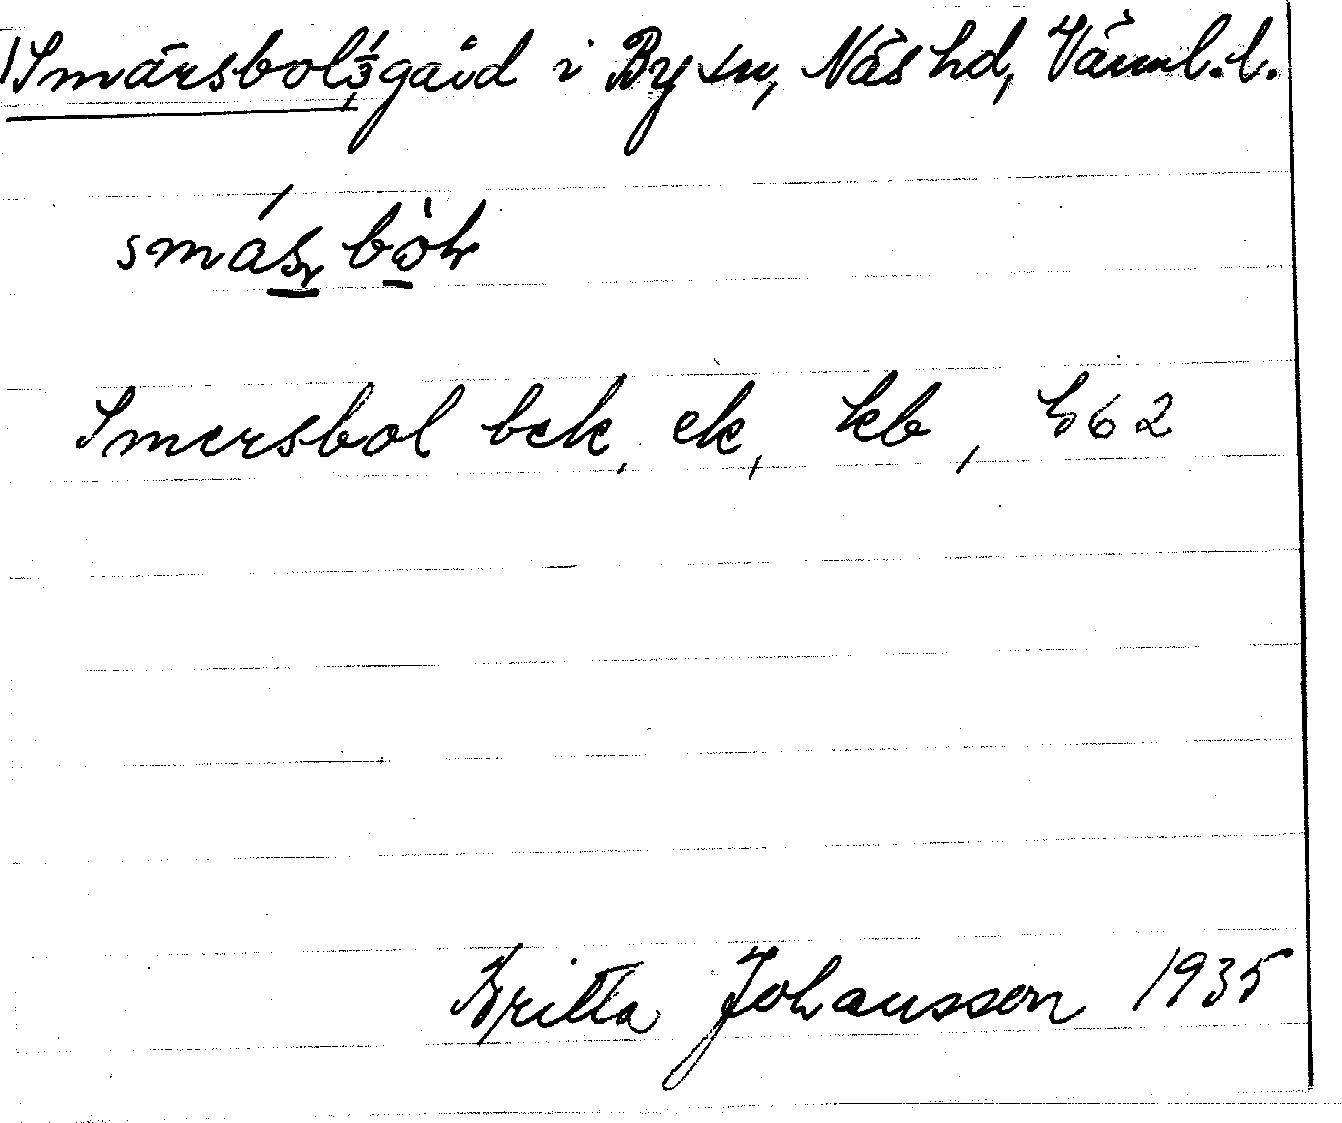 Smärsbol, 1/3 gård i By sn, Näs hd, Värml. l.
Smersbol bek, ek, kb, h62
Britta Johansson 1935